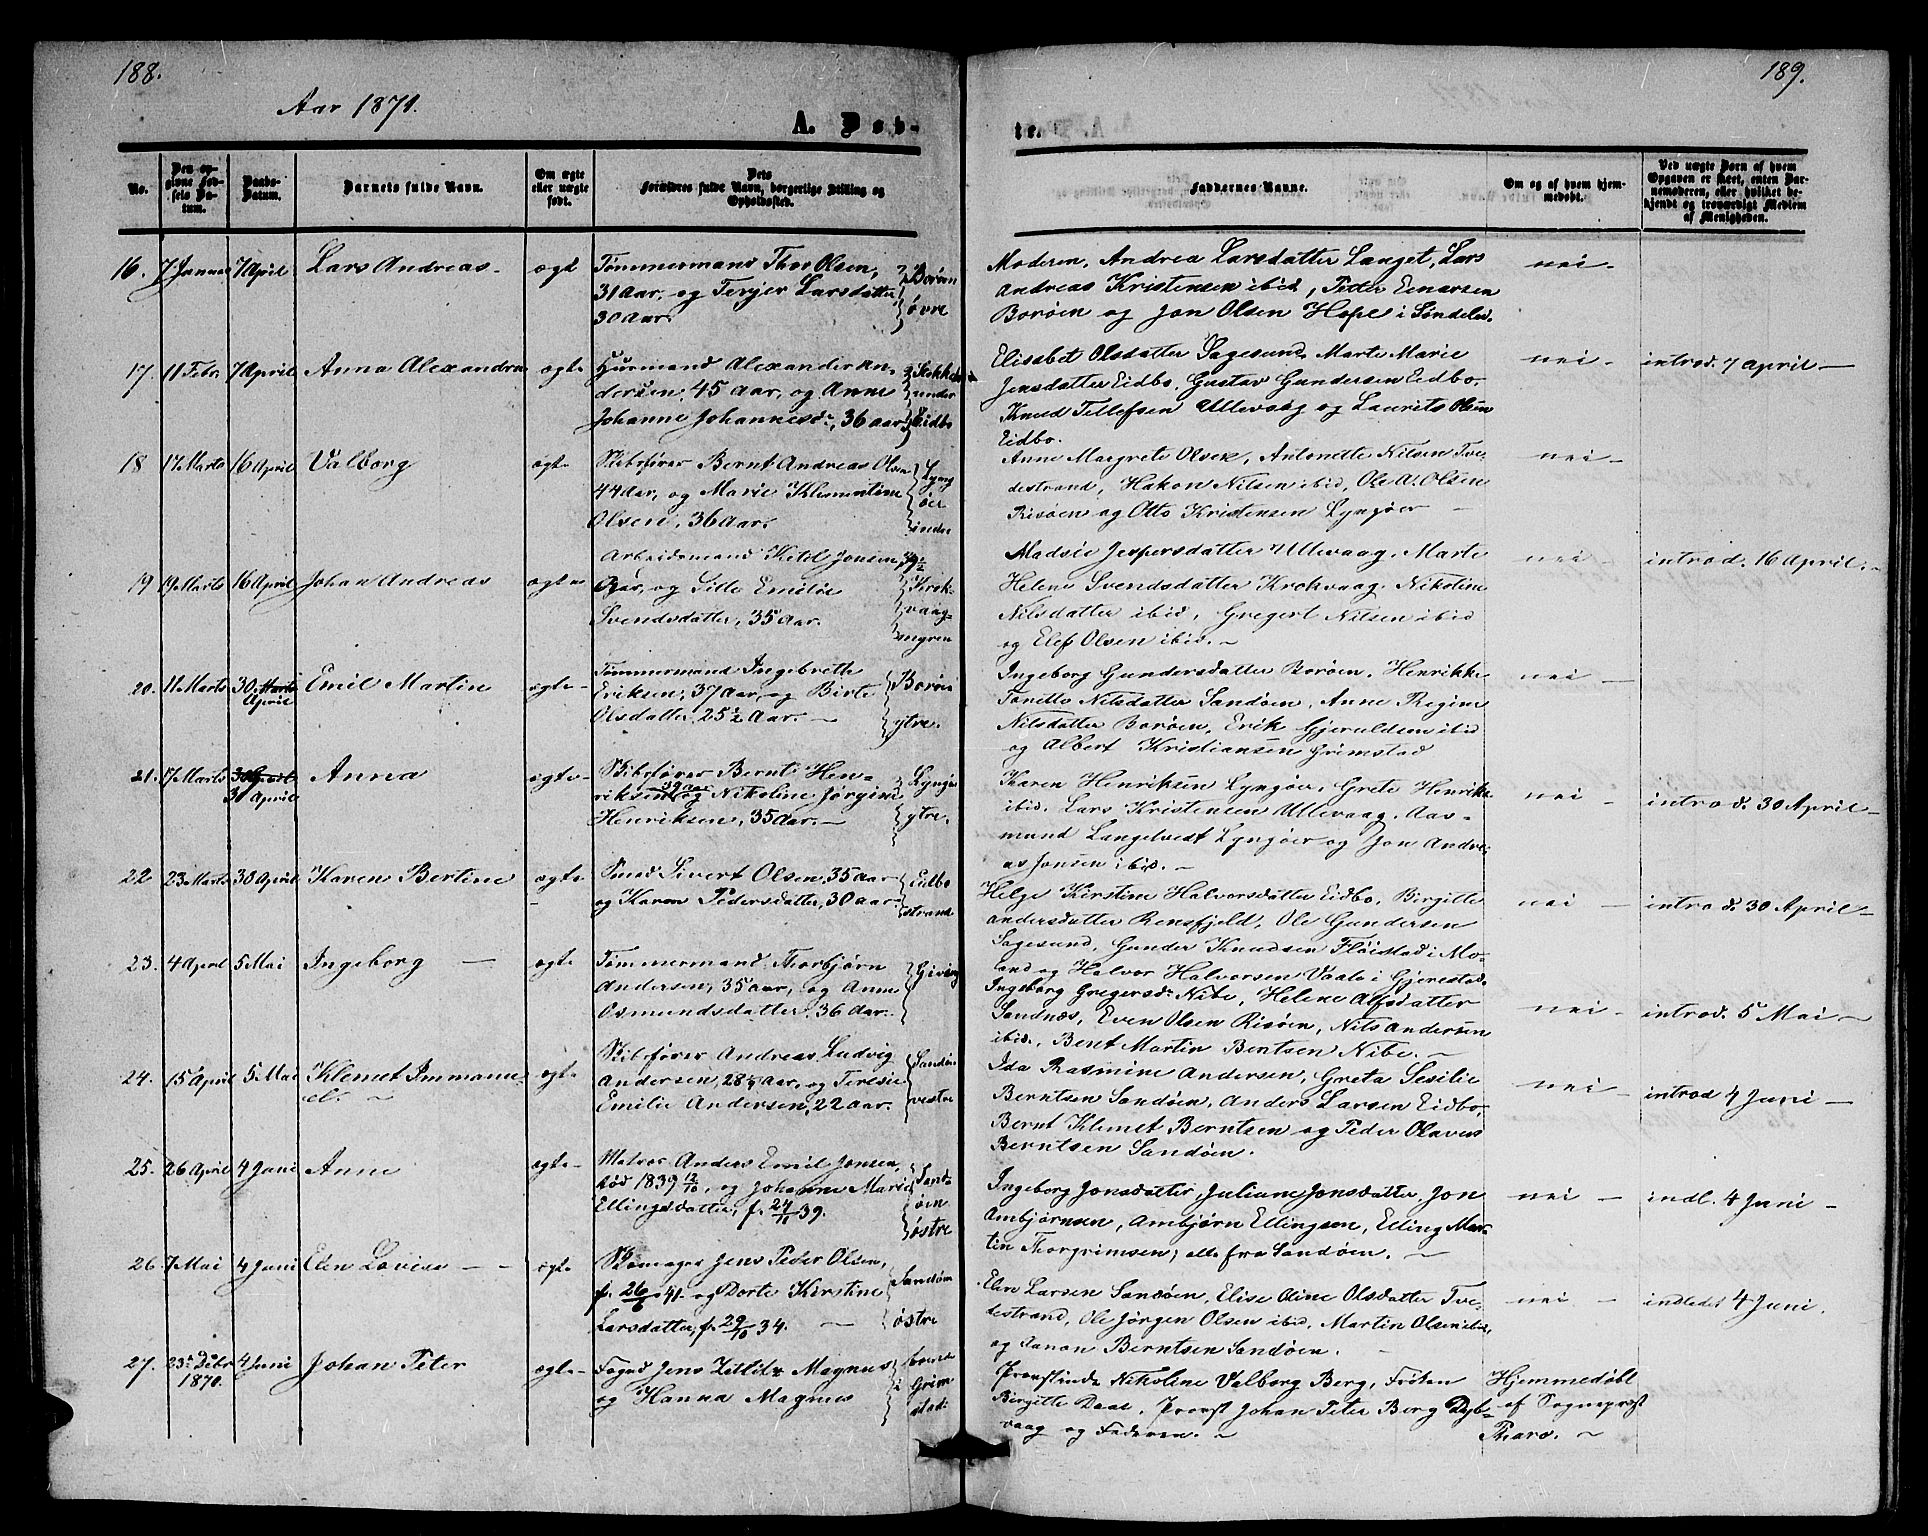 188.
Aar 1871.
A. Døb-
No.
Den opgivne Fødsels Datum.
Daabs-Datum.
Barnets fulde Navn.
Om ægte eller uægte født.
Dets Forældres fulde Navn, borgerlige Stilling og Opholdssted.
16. 7 Januar 7 April Lars Andreas - ægte
Tømmermand Thor Olsen,
31 Aar, og Terjer Larsdatter
30 Aar.
Borøen
øvre
17. 11 Febr. 7 April Anna Alexandra ægte
Huusmand Alexander An-
dersen, 45 aar, og Anne
Johanne Johannesdr, 36 aar
under
Eidbo
18 17 Marts 16 April Valborg ægte
Skibsfører Bernt Andreas Olsen
44 Aar, og Marie Klementine
Olsen, 36 Aar.
Lyng
øer
indre
19 19 Marts 16 April Johan Andreas ægte
Arbeidsmand Ketil Jonsen, 39½
Aar, og Sille Emilie
Svendsdatter, 35 Aar.
Krok-
vaag-
myren
20. 11 Marts 30 Marts April Emil Martin ægte-
Tømmermand Ingebreth
Eriksen, 37 Aar, og Birte
Olsdatter, 25½ Aar. -
Borøen
ytre.
21. 17 Marts 30 April Anna ægte-
Skibsfører Bernt Hen-
39 aar
riksen og Nikoline Jørgine
Henriksen, 35 Aar. -
Lyngøer
ytre.
22 23 Marts 30 April Karen Bertine ægte-
Smed Sivert Olsen, 35 aar
og Karen Pedersdatter, 30 aar-
Eidbo
strand
23. 4 April 5 Mai Ingeborg - ægte
Tømmermand Thorbjørn
Andersen, 35 aar, og Anne
Osmundsdatter, 36 Aar.
Giving
24. 15 April 5 Mai Klemet Immanu-
el. ægte
Skibsfører Andreas Ludvig
Andersen, 28¼ Aar, og Teresie
Emilie Andersen, 22 aar.
Sandøen
vestre
25. 26 April 4 Juni Anne ægte-
Matros Anders Emil Jonsen,
fød 1839 12/10, og Johanne Marie
Ellingsdatter, f. 24/11 39.
Sand-
øen
østre
26 7 Mai 4 Juni Elen Lovise - - ægte
Skomager Jens Peder Olsen,
f. 26/6 41. og Dorte Kirstine
Larsdatter, f. 29/10 34. -
Sandøen
østre
27. 23de Debr 1870. 4 Juni Johan Peter ægte-
Foged Jens Zetlitz Magnus
og Hanna Magnus
i
Grim
stad.
189.
te.
Faddernes Navne.
Om og af hvem hjemmedøbt.
Ved uægte Børn af hvem Opgaven er skeet, enten Barnemoderen, eller hvilket bekjendt og troværdigt Medlem af Menigheden.
Moderen, Andrea Larsdatter Langet, Lars
Andreas Kristensen ibid, Peder Einarsen
Borøen og Jon Olsen Hope i Søndeled.
nei -
Elisabet Olsdatter Sagesund, Marte Marie
Jensdatter Eidbo, Gustav Gundersen Eidbo,
Knud Tellefsen Ullevaag og Laurits Olsen
Eidbo.
nei - introd. 7 april -
Anne Margrete Olsen, Antonette Nilsen Tve-
destrand, Hakon Nilsen ibid, Ole A. Olsen
Risøen og Otto Kristensen Lyngøer -
nei -
Madsie Jespersdatter Ullevaag, Marte
Helene Svendsdatter Krokvaag, Nikoline
Nilsdatter ibid, Gregert Nilsen ibid
og Elef Olsen ibid. -
nei - introd. 16 April. -
Ingeborg Gundersdatter Borøen, Henrikke
Tonette Nilsdatter Sandøen, Anne Regine
Nilsdatter Borøen, Erik Gjeruldsen ibid
og Albert Kristiansen Grimstad
nei -
Karen Henriksen Lyngøer, Grete Henriks.
ibid, Lars Kristensen Ullevaag, Aas-
mund Langelvedt Lyngøer og Jon Andre-
as Jonsen ibid. -
nei - introd. 30 April -
Helge Kirstine Halvorsdatter Eidbo, Birgitte
Andersdatter Rensfjeld, Ole Gundersen
Sagesund, Gunder Knudsen Fløistad i Mo-
land og Halvor Halvorsen Vaale i Gjerestad.
nei - introd. 30 April -
Ingeborg Gregersdr Nibe, Helene Alfsdatter
Sandnæs, Even Olsen Risøen, Nils Andersen
ibid, Bent Martin Bentsen Nibe. -
nei - introd. 5 Mai -
Ida Rasmine Andersen, Greta Sesilie
Berntsen Sandøen, Anders Larsen Eidbo,
Bernt Klemet Berntsen og Peder Olavus
Berntsen Sandøen.
nei - introd 4 Juni -
Ingeborg Jonsdatter, Juliane Jonsdatter, Jon
Ambjørnsen, Ambjørn Ellingsen, Elling Mar-
tin Thorgrimsen, alle fra Sandøen. -
nei - indl. 4 Juni -
Elen Larsen Sandøen, Elise Oline Olsdatter Tve-
destrand, Ole Jørgen Olsen ibid, Martin Olsen ibid,
og Aanon Berntsen Sandøen. -
nei - indledet 4 Juni.
Provstinde Nikoline Valborg Berg, Frøken
Birgitte Daae, Provst Johan Peter Berg Dyb-
vaag og Faderen. -
Hjemmedøbt
af Sognepræst
Tharo. -